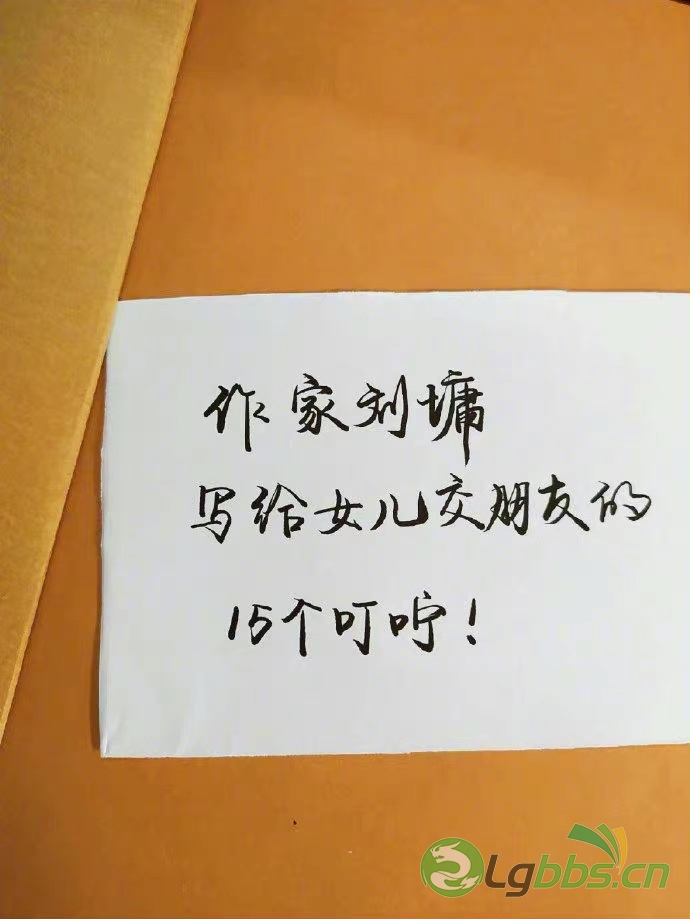 作家刘墉
写给女儿交朋友的
15个叮咛!
Lgbbs.cn